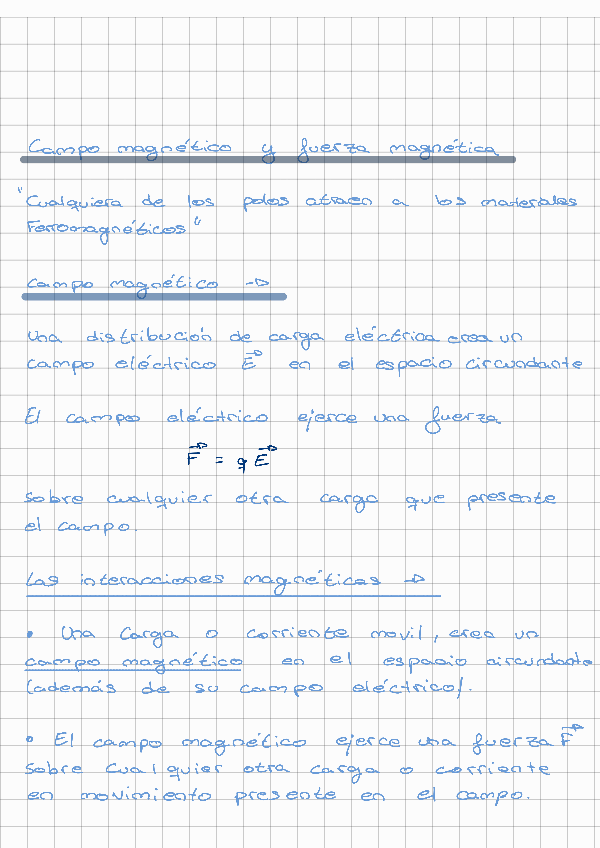 Campo magnético y fuerza magnética
"Cualquiera de los polos atraen a los materiales
Ferromagnéticos"
Campo magnético →
Una distribución de carga eléctrica crea un
campo eléctrico E⃗ en el espacio circundante
El campo eléctrico ejerce una fuerza
F⃗ = qE⃗
Sobre cualquier otra carga que presente
el campo.
Las interacciones magnéticas →
• Una Carga o corriente movil, crea un
campo magnético en el espacio circundante
(además de su campo eléctrico).
• El campo magnético ejerce una fuerza F⃗
Sobre cualquier otra carga o corriente
en movimiento presente en el campo.